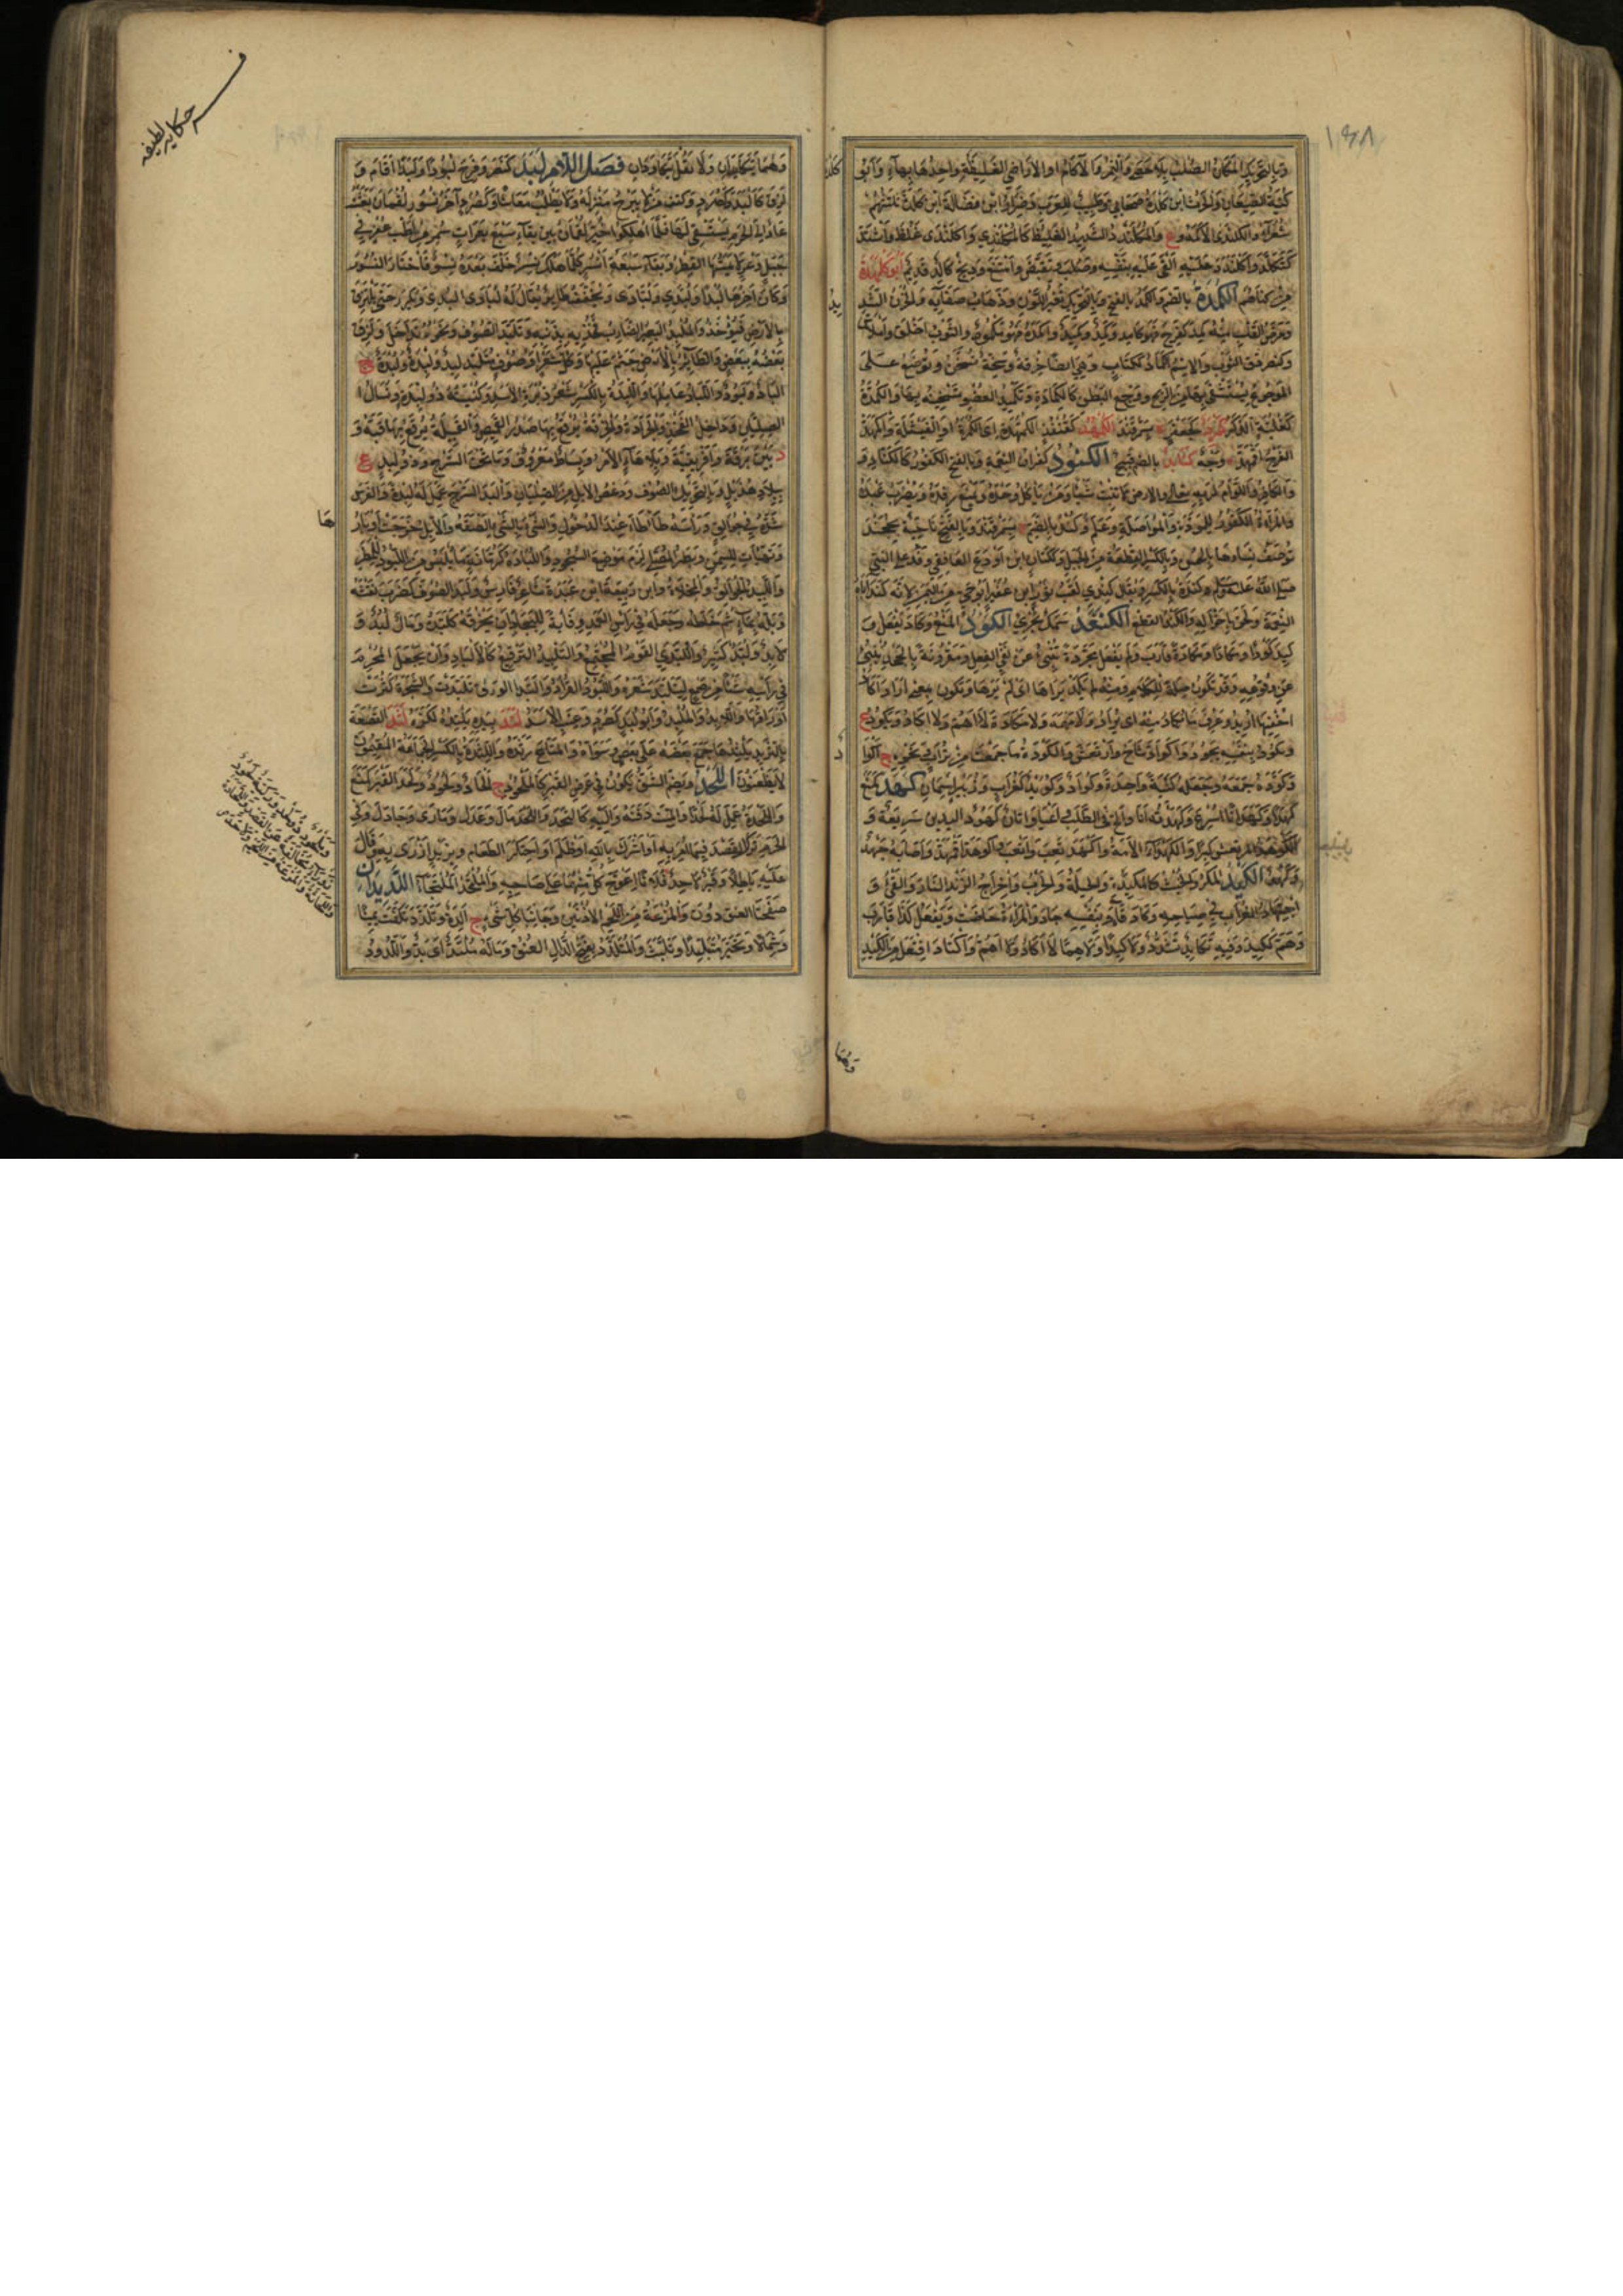 وبالتحريك المكان الصلب بلا حصى والنمر والآكام او الاراضى الغليظة واحدها بهاء وابو
كنية الضبعان والحرث ابن كلدة صحابي وطبيب للعرب وضرار ابن فضالة ابن كلدة ثلثتهم
شعراء والكلندى الاكمة وع والمكلندد الشديد الغليظ كالمكلندي واكلندى غلظ واشتد
كتكلد واكلندد عليه القى عليه بنفسه وصلب وتقبض وامتنع وذيخ كالد قديم ابو كلهدة
من كناهم الكمدة بالضم والكمد بالفتح وبالتحريك تغير اللون وذهاب صفائه والحزن الشديد
ومرض القلب منه كمد كفرح فهو كامد وكمد وكميد واكمده فهو مكمود والثوب اخلق واملاس
وكنصر دق الثوب والاسم الكماد ككتاب وهي ايضا خرقة وسخة تسخن وتوضع على
الموجوع يستشفى بها من الريح ووجع البطن كالكمادة وتكميد العضو تسخينه بها والكمدة
كغلبة الذكر كمرد كجعفر ة بسمرقند الكمهد كقنفذ الكمهدة اى الكمرة او الفيشلة واكمهد
الفرخ اقمهد وجه كنابد بالضم قبيح الكنود كفران النعمة وبالفتح الكفور كالكناد و
والكافر واللوام لربه تعالى والارض لا تنبت شيئا ومن ياكل وحده ويمنع رفده ويضرب عبده
والمراة الكفور للمودة والمواصلة وعلم وكند بالضم ة بسمرقند وبالفتح ناحية بخجند
توصف نساؤها بالحسن وبالكسر القطعة من الجبل وككتاب ابن اودع الغافقي وفد على النبي
صلى الله عليه وسلم وكندة بالكسر ويقال كندي لقب ثور ابن عفير ابو حي من اليمن لانه كند اباه
النعمة ولحق باخواله والكند القطع الكنعد سمك بحري الكود المنع وكاد يفعل و
كيد كودا ومكادا ومكادة قارب ولم يفعل مجردة تنبئ عن نفي الفعل ومقرونة بالجحد تنبئ
عن وقوعه وقد تكون صلة للكلام ومنه لم يكد يراها اى لم يرها وتكون بمعنى اراد اكاد
اخفيها اريد وعرف ما يكاد منه اى يراد ولا مهمة ولا مكادة لا اهم ولا اكاد ويكود ع
ويكود بنفسه يجود واكواد شاخ وارتعش والكودة ما جمعت من تراب ونحوه ج اكواد
وكوده جمعه وجعله كثبة واحدة وكواد وكويد كغراب وزبير اسمان كهد كمنع
كهدا وكهدانا اسرع وكهدته انا والح فى الطلب واعيا واتان كهود اليدين سريعة و
الكوهد المرتعش كبرا والكهداء الامة واكهد تعب واتعب واكوهد اقمهد واصابه جهد
وكهد الكيد المكر والخبث كالمكيدة والحيلة والحرب واخراج الزند النار والقئ و
اجتهاد الغراب في صياحه وكاد قاء وبنفسه جاد والمراة حاضت ويفعل كذا قارب
وهم ككيد وفيه تكايد تشدد ولا كيدا ولا هما لا اكاد ولا اهم واكتاد افتعل من الكيد
وهما يتكايدان ولا تقل يتكاودان فصل اللام لبد كنصر وفرح لبودا ولبدا اقام و
لزق كالبد وكصرد وكتف من لا يبرح منزله ولا يطلب معاشا وكصرد آخر نسور لقمان بعثته
عاد الى الحرم يستسقي لها فلما اهلكوا خير لقمان بين بقاء سبع بعرات سمر من اظب عفر في
جبل وعر لا يمسها القطر وبقاء سبعة انسر كلما هلك نسر خلف بعده نسر فاختار النسور
وكان آخرها لبدا ولبدي ولبادى ويخفف طاير يقال له لبادى البدي ويكرر حتى يلتزق
بالارض فيؤخذ والملبد البعير الضارب فخذيه بذنبه وتلبد الصوف ونحوه تداخل ولزق
بعضه ببعض والطاير بالارض جثم عليها وكل شعر او صوف متلبد لبد ولبدة ولبدة ج
الباد ولبود واللباد عاملها واللبدة بالكسر شعر زبرة الاسد وكنيته ذو لبدة ونسال
الصليان وداخل الفخذ والجرادة والخرقة يرقع بها صدر القميص والقبيلة يرقع بها قبه و
د بين برقة وافريقية وبلا هاء الامر وبساط معروف وما تحت السرج وذو لبد ع
ببلاد هذيل وبالتحريك الصوف ودغص الابل من الصليان والبد السرج عمل له لبدة والفرس
شده في جوالق وراسه طاطاه عند الدخول والشئ بالشئ الصقه والابل خرجت اوبارها
وتهيات للسمن وبصر المصلي لزم موضع السجود واللبادة كرمانة ما يلبس من اللبود للمطر
واللبيد الجوالق والمخلاة وابن ربيعة ابن عبدة شاعر فارس ولبد الصوف كضرب نفشه
وبله بماء ثم خاطه وجعله في راس العمد وقاية للبجاد ان يخرقه كلبده ومال لبد و
لابد ولبد كثير واللبدي القوم المجتمع والتلبيد الترقيع كالالباد وان يجعل المحرم
في راسه شيئا من صمغ ليتلبد شعره واللبود القراد والتبد الورق تلبدت والشجرة كثرت
اوراقها واللبيد والملبد وابو لبد كصرد وعنب الاسد لتده بيده يلتده لكزه لثد القصعة
بالثريد يلثدها جمع بعضه على بعض وسواه والمتاع رثده واللثدة بالكسر الجماعة المقيمون
لا يظعنون اللحد ويضم الشق يكون في عرض القبر كالملحود ج الحاد ولحود ولحد القبر كمنع
والحده عمل له لحدا والميت دفنه واليه مال كالتحد والحد مال وعدل ومارى وجادل وفي
الحرم ترك القصد فيما امر به او اشرك بالله او ظلم او احتكر الطعام وبزيد ازرى به وقال
عليه باطلا وقبر لاحد ذو لحد ولاحده اعوج كل منهما على صاحبه والملتحد الملتجا اللديدان
صفحتا العنق دون الاذنين وجانبا كل شئ ج الدة وتلدد تلفت يمينا
وشمالا وتحير متبلدا وتلبث والمتلدد بفتح الدال العنق وماله ملتد اى بد واللدود
حكاية لطيفة
ها
وهما